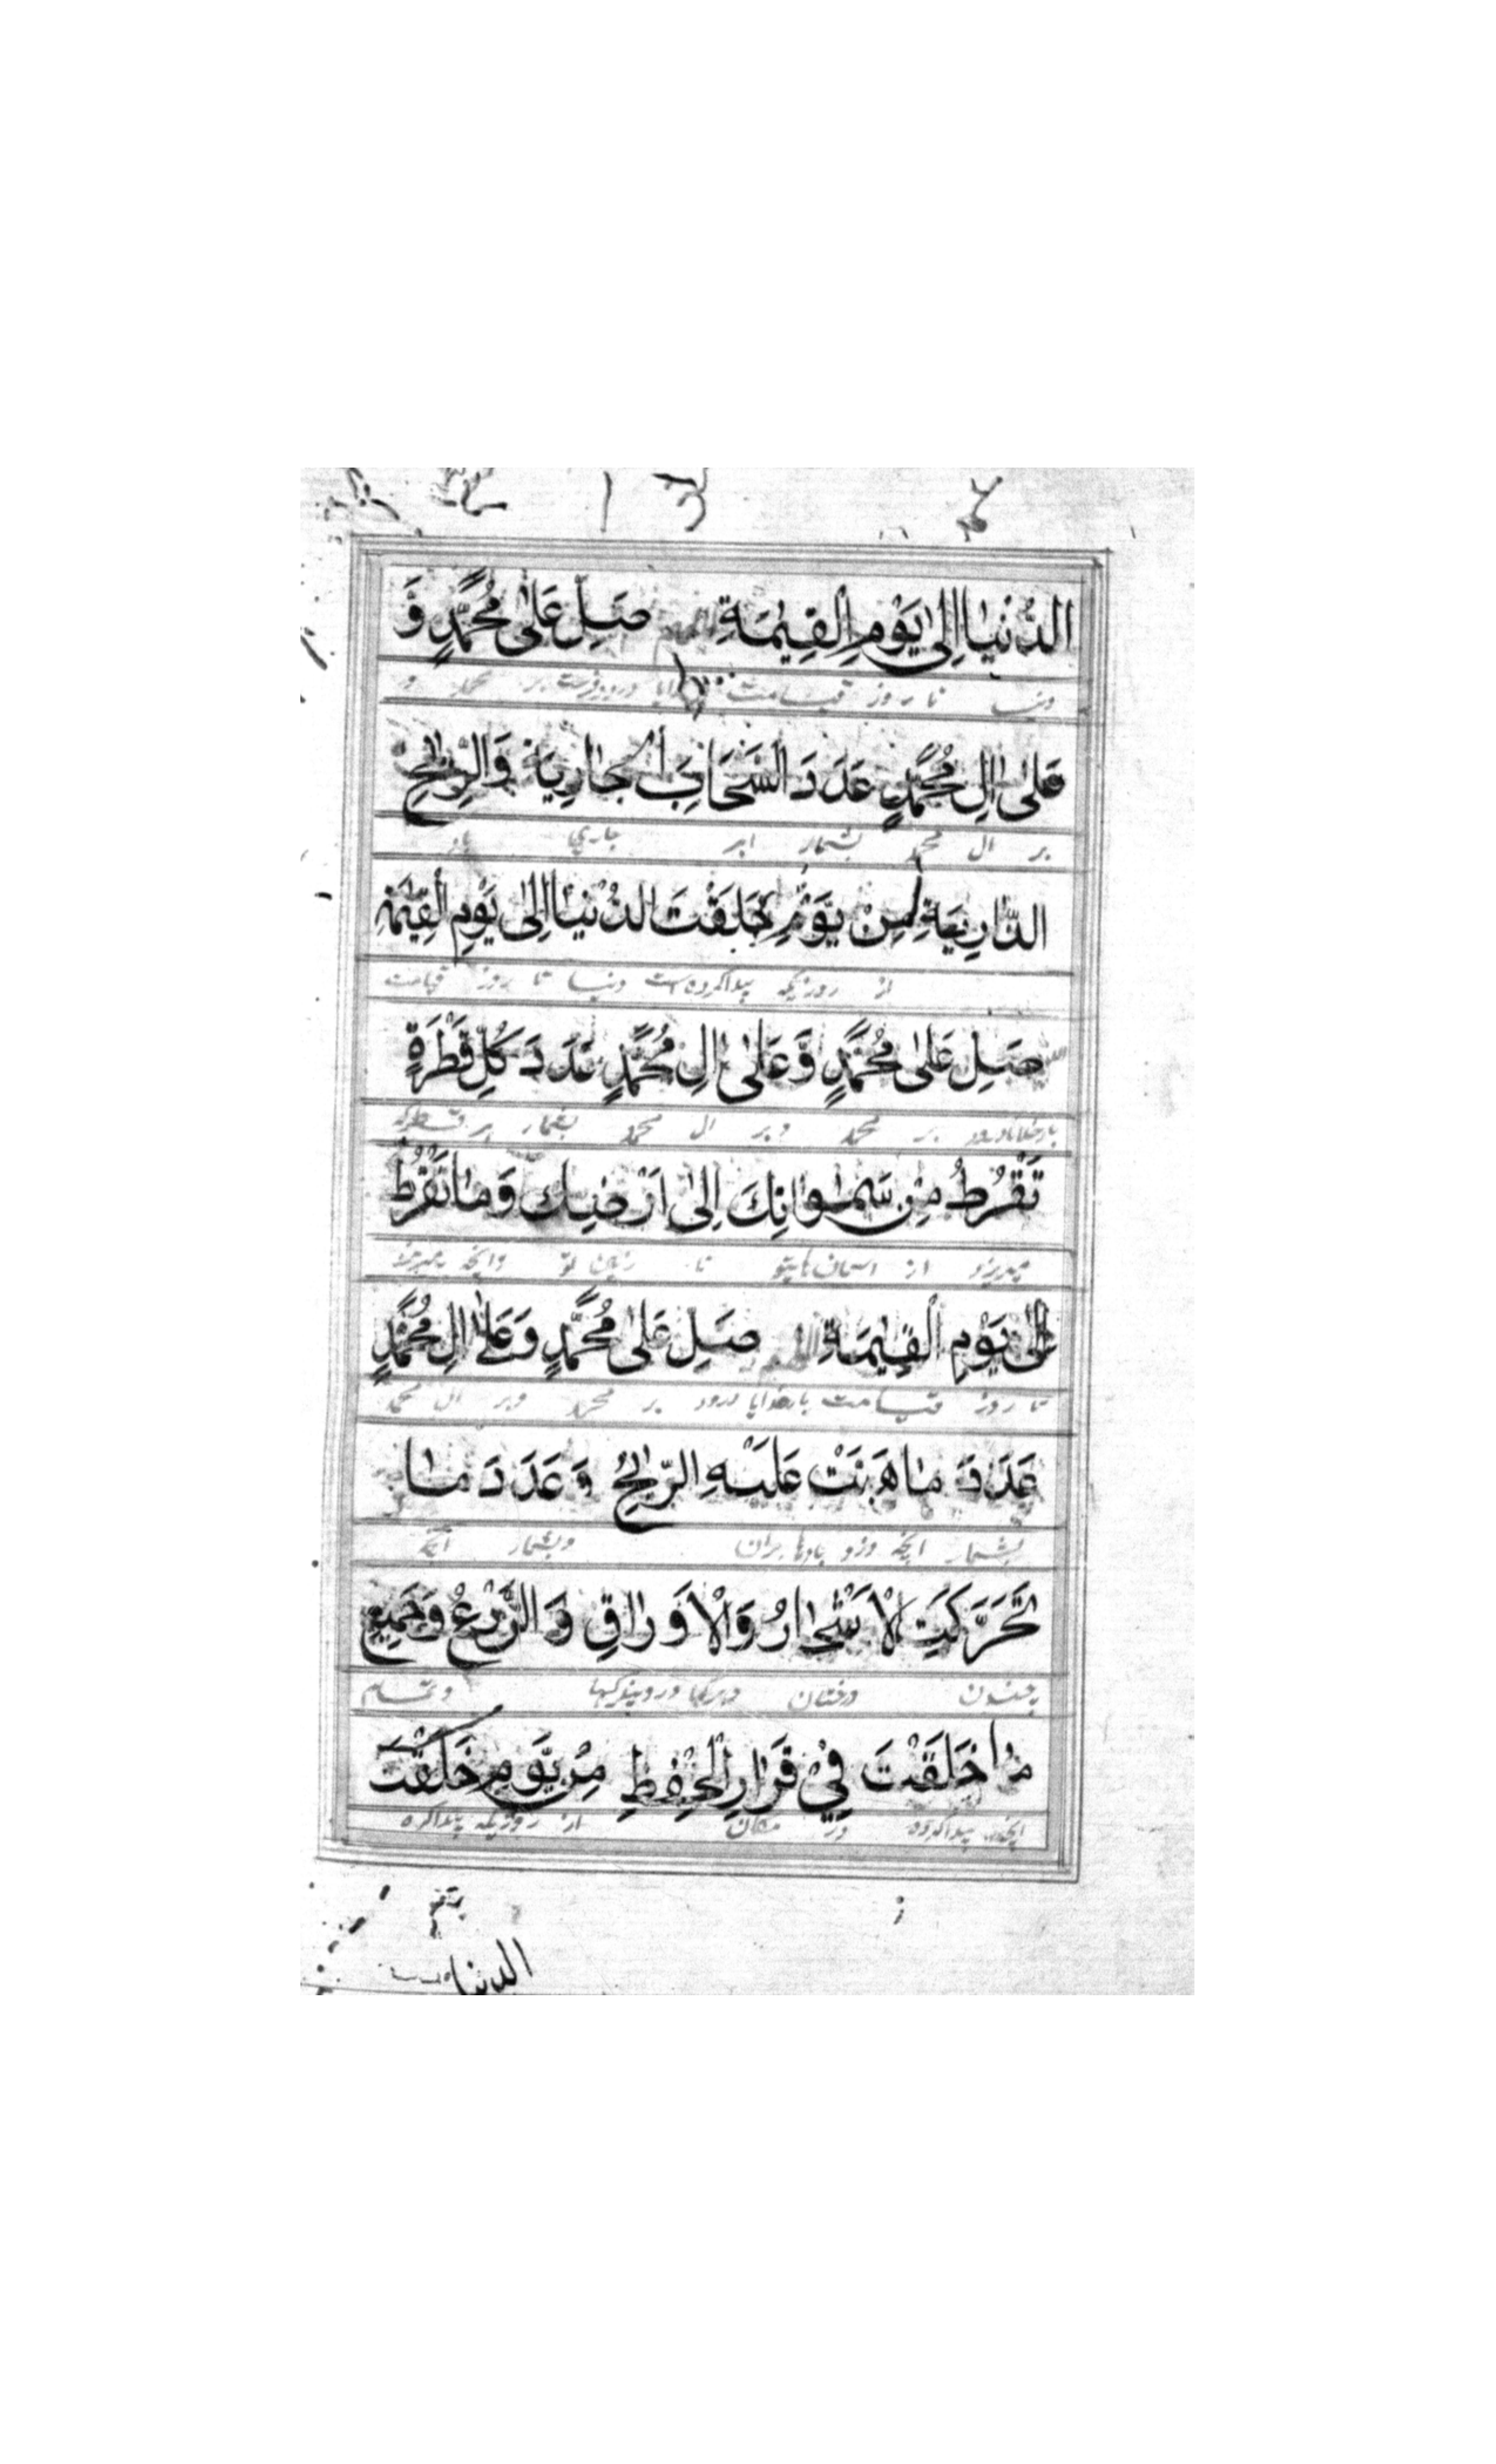 الدُّنْيٰا اِلىٰ يَوْمِ الْقِيٰمَةِ اللهم صَلِّ عَلىٰ مُحَمَّدٍ وَّ
دنیا تا روز قیامت درود فرست بر محمد و
عَلىٰ اٰلِ مُحَمَّدٍ عَدَدَ السَّحَابِ الْجٰارِيَةِ وَالرِّيٰحِ
بر ال محمد بشمار ابر جاري
الذّٰارِيَةِ مِنْ يَوْمِ خَلَقْتَ الدُّنْيٰا اِلىٰ يَوْمِ الْقِيٰمَةِ
از روزیکه پیدا کرده است دنیا تا روز قیامت
صَلِّ عَلىٰ مُحَمَّدٍ وَّعَلىٰ اٰلِ مُحَمَّدٍ عَدَدَ كُلِّ قَطْرَةٍ
بر محمد وبر ال محمد بشمار هر قطره که
تَقْرُطُ مِنْ سَمٰوٰاتِكَ اِلىٰ اَرْضِكَ وَمٰا تَقْرُطُ
از اسمان تا زمین تو وانچه
اِلىٰ يَوْمِ الْقِيٰمَةِ اللهم صَلِّ عَلىٰ مُحَمَّدٍ وَّعَلىٰ اٰلِ مُحَمَّدٍ
تا روز قیامت بارخدایا درود بر محمد وبر ال محمد
عَدَدَ مٰا هَبَّتْ عَلَيْهِ الرِّيٰحُ وَعَدَدَ مٰا
بشمار انچه وزد بادها بران وبشمار انچه
تَحَرَّكَتِ لْاَشْجٰارُ وَالْاَوْرٰاقِ وَالزَّرْعُ وَجَمِيْعِ
درختان وبرگها وتمام
مٰا خَلَقْتَ فِيْ قَرٰارِ الْحِفْظِ مِنْ يَّوْمِ خَلَقْتَ
انچه پیدا کرده در مکان از روزیکه پیدا کرده
الدنيا